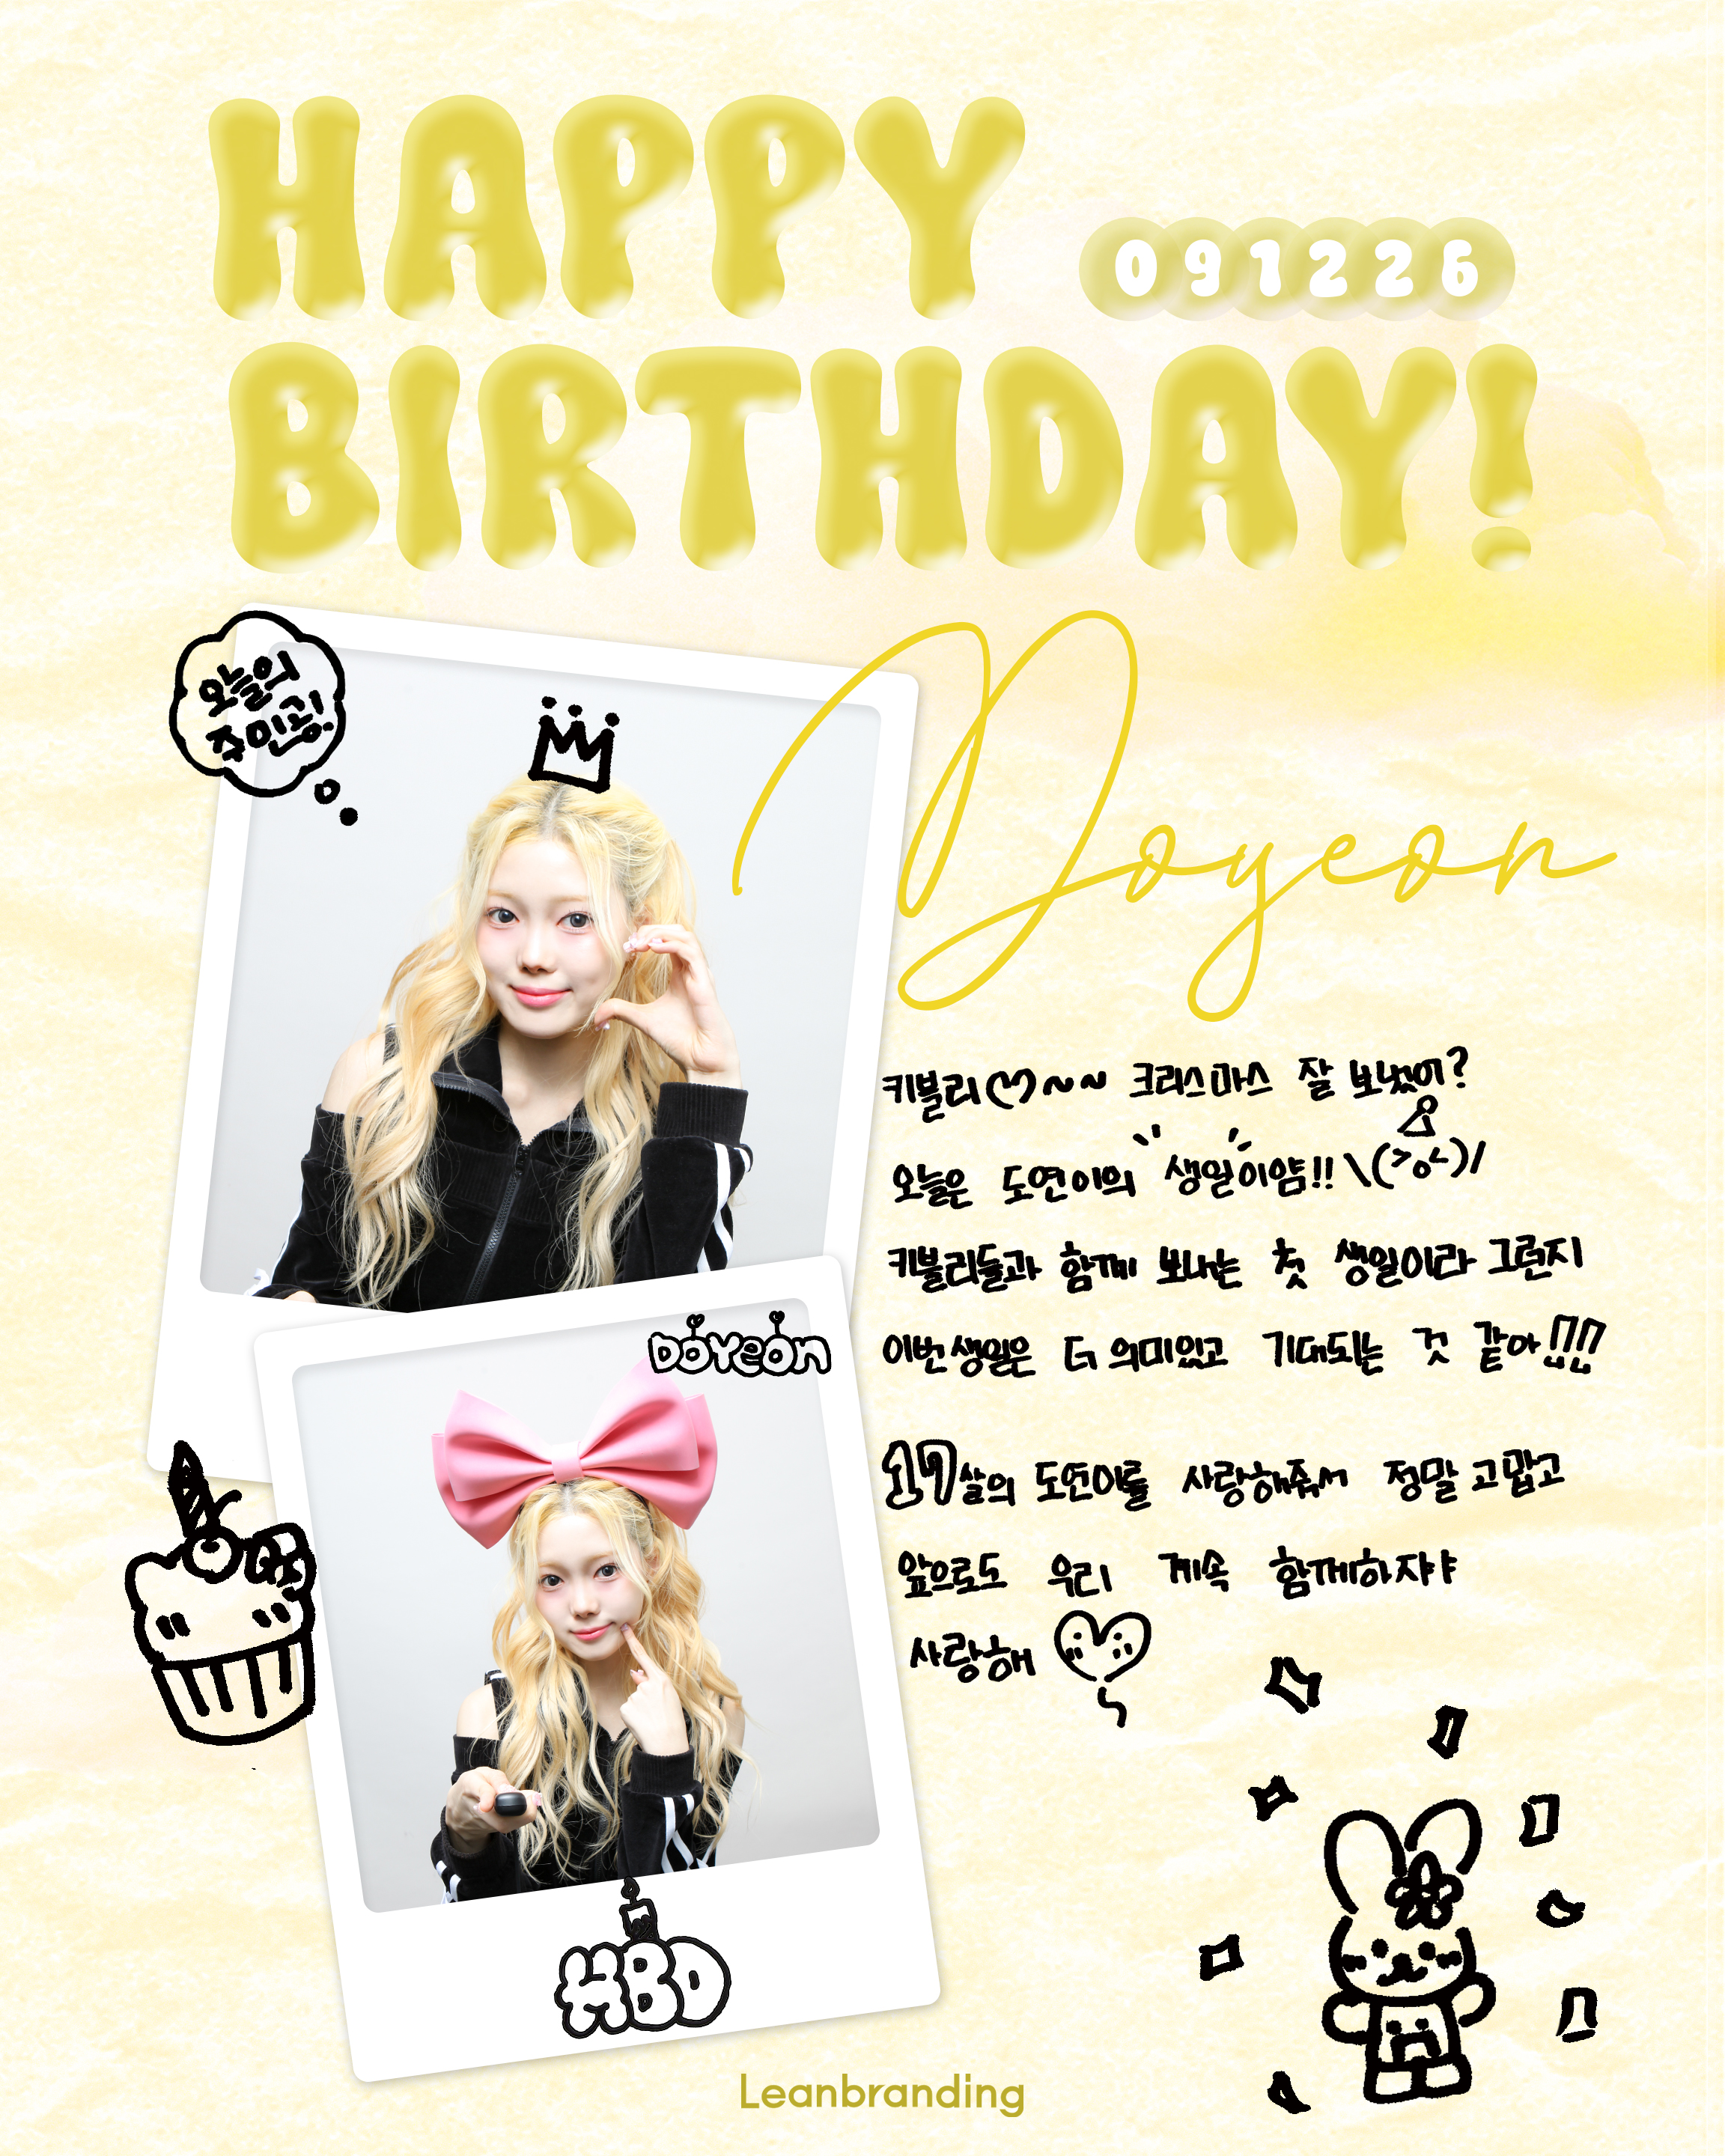 HAPPY
091226
BIRTHDAY!
오늘의
주인공!
Doyeon
키블리♡~~ 크리스마스 잘 보냈어?
오늘은 도연이의 생일이얌!! \(>o<)/
키블리들과 함께 보내는 첫 생일이라 그런지
이번 생일은 더 의미있고 기대되는 것 같아!!!
17살의 도연이를 사랑해줘서 정말 고맙고
앞으로도 우리 계속 함께하자아
사랑해
DOYEON
HBD
Leanbranding